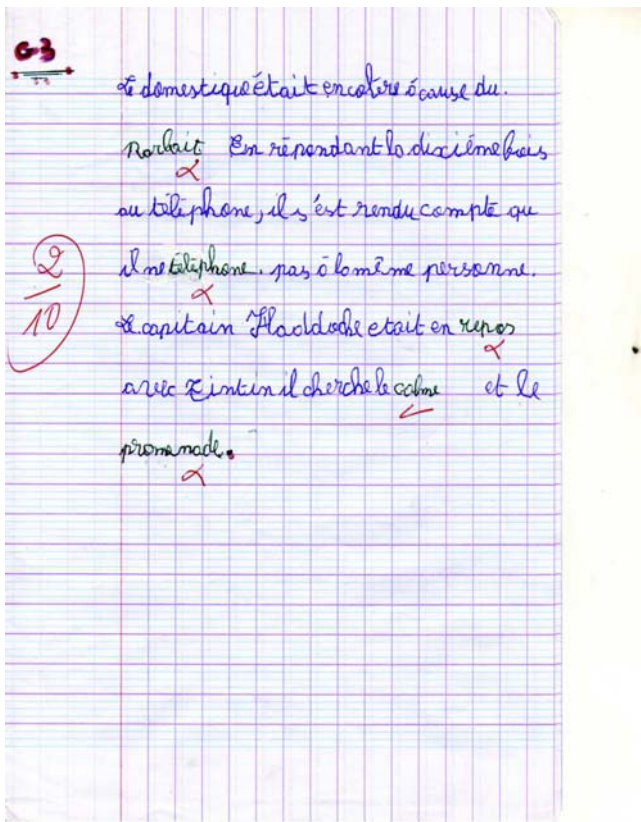 G3
Le domestique était en colère à cause du.
Norbait En répondant la dixième fois
au téléphone, il s'est rendu compte qu
il ne téléphone. pas à la même personne.
2/10
Le capitain Haddoche etait en repos
avec Tintin il cherche le calme et le
promenade.